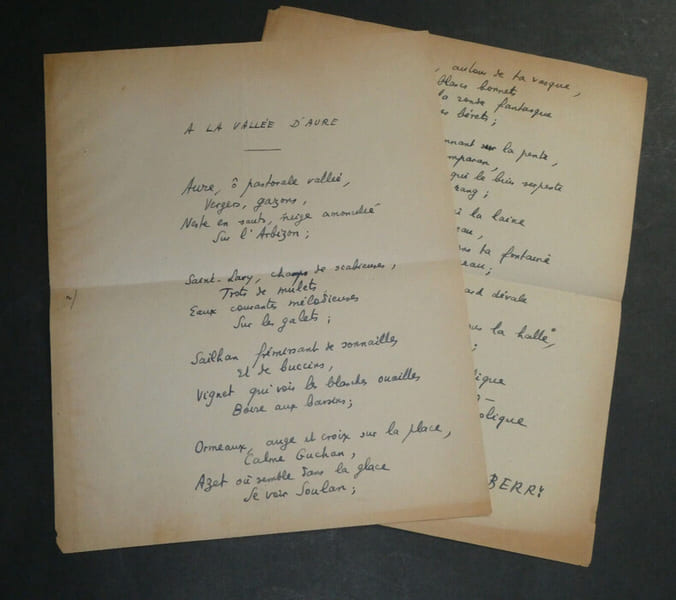 A LA VALLÉE D'AURE
Aure, ô pastorale vallée,
Vergers, gazons,
Neste en sauts, neige amoncelée
Sur l'Arbizon ;
Saint-Lary, champs de scabieuses,
Trots de mulets
Eaux courantes mélodieuses
Sur les galets ;
Sailhan frémissant de sonnailles
Et de buccins,
Vignec qui vois les blanches ouailles
Boire aux bassins ;
Ormeaux, auge et croix sur la place,
Calme Guchan,
Azet où semble dans la glace
Se voir Soulan ;
2)
, autour de ta vasque,
blancs bonnets
la ronde fantasque
bérets ;
nnant sur la pente,
mparan,
que le buis serpente
rang ;
à la laine
eau,
ans ta fontaine
eau ;
ard dévale
us la halle,
;
lique
olique
BERRY